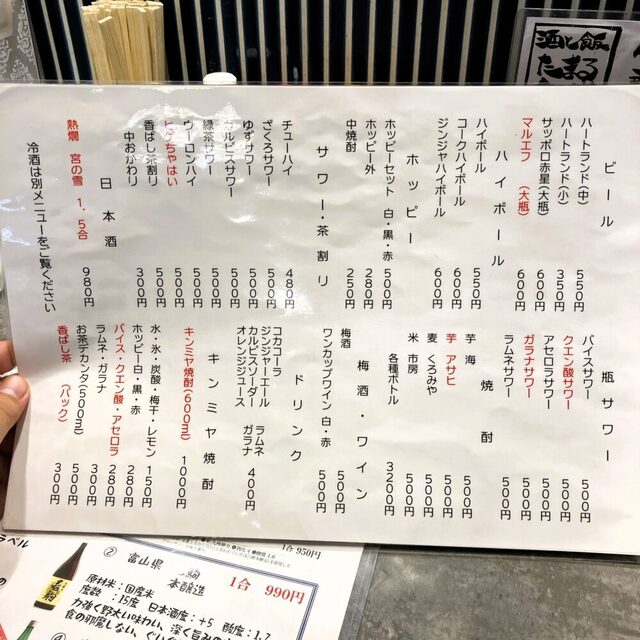 酒と飯
たまる
ビール
ハートランド(中) 550円
ハートランド(小) 350円
サッポロ赤星(大瓶) 600円
マルエフ (大瓶) 600円
ハイボール
ハイボール 550円
コークハイボール 600円
ジンジャハイボール 600円
ホッピー
ホッピーセット 白・黒・赤 500円
ホッピー外 280円
中焼酎 250円
サワー・茶割り
チューハイ 480円
ざくろサワー 500円
ゆずサワー 500円
カルピスサワー 500円
緑茶サワー 500円
ウーロンハイ 500円
500円
香ばし茶割り 500円
中おかわり 300円
日本酒
熱燗 宮の雪 1.5合 980円
冷酒は別メニューをご覧ください
瓶サワー
バイスサワー 500円
クエン酸サワー 500円
アセロラサワー 500円
ガラナサワー 500円
ラムネサワー 500円
焼酎
芋 海 500円
芋 アサヒ 500円
麦 くろみや 500円
米 市房 500円
各種ボトル 3200円
梅酒・ワイン
梅酒 500円
ワンカップワイン 白・赤 500円
ドリンク
コカコーラ
ジンジャーエール ラムネ
カルピスソーダー ガラナ
オレンジジュース 400円
キンミヤ焼酎
キンミヤ焼酎(600ml) 1000円
水・氷・炭酸・梅干・レモン 150円
ホッピー白・黒・赤 280円
バイス・クエン酸・アセロラ 280円
ラムネ・ガラナ 300円
お茶デカンタ(500ml) 500円
香ばし茶 (パック) 300円
1合 950円
ラベル
② 富山県 本醸造 1合 990円
原材米:国産米
度数 :15度 日本酒度:+5 酸度:1.7
力強く野太い味わい、深く旨みの
食の邪魔しない、